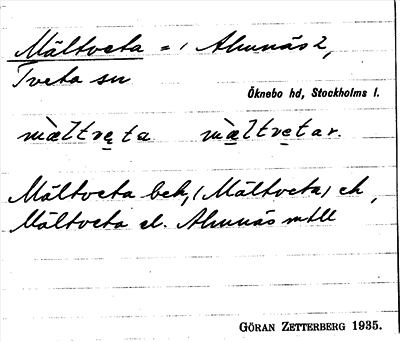 Mältveta = 1 Almnäs 2,
Tveta sn
Öknebo hd, Stockholms l.
mæ̀ltvẹta mæ̀ltvẹtar.
Mältveta bek, (Mältveta) ek,
Mältveta el. Almnäs mtll
GÖRAN ZETTERBERG 1935.